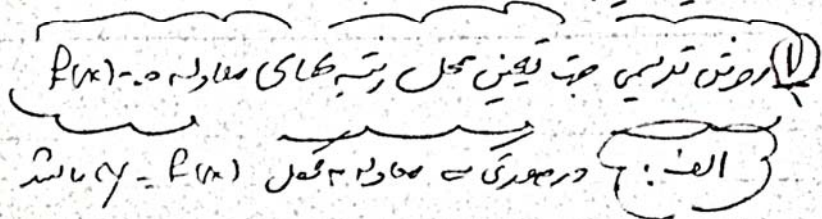 ۱ روش ترسیمی جهت تعیین محل ریشه های معادله f(x)=0
الف: در صورتی که معادله به شکل y = f(x) باشد